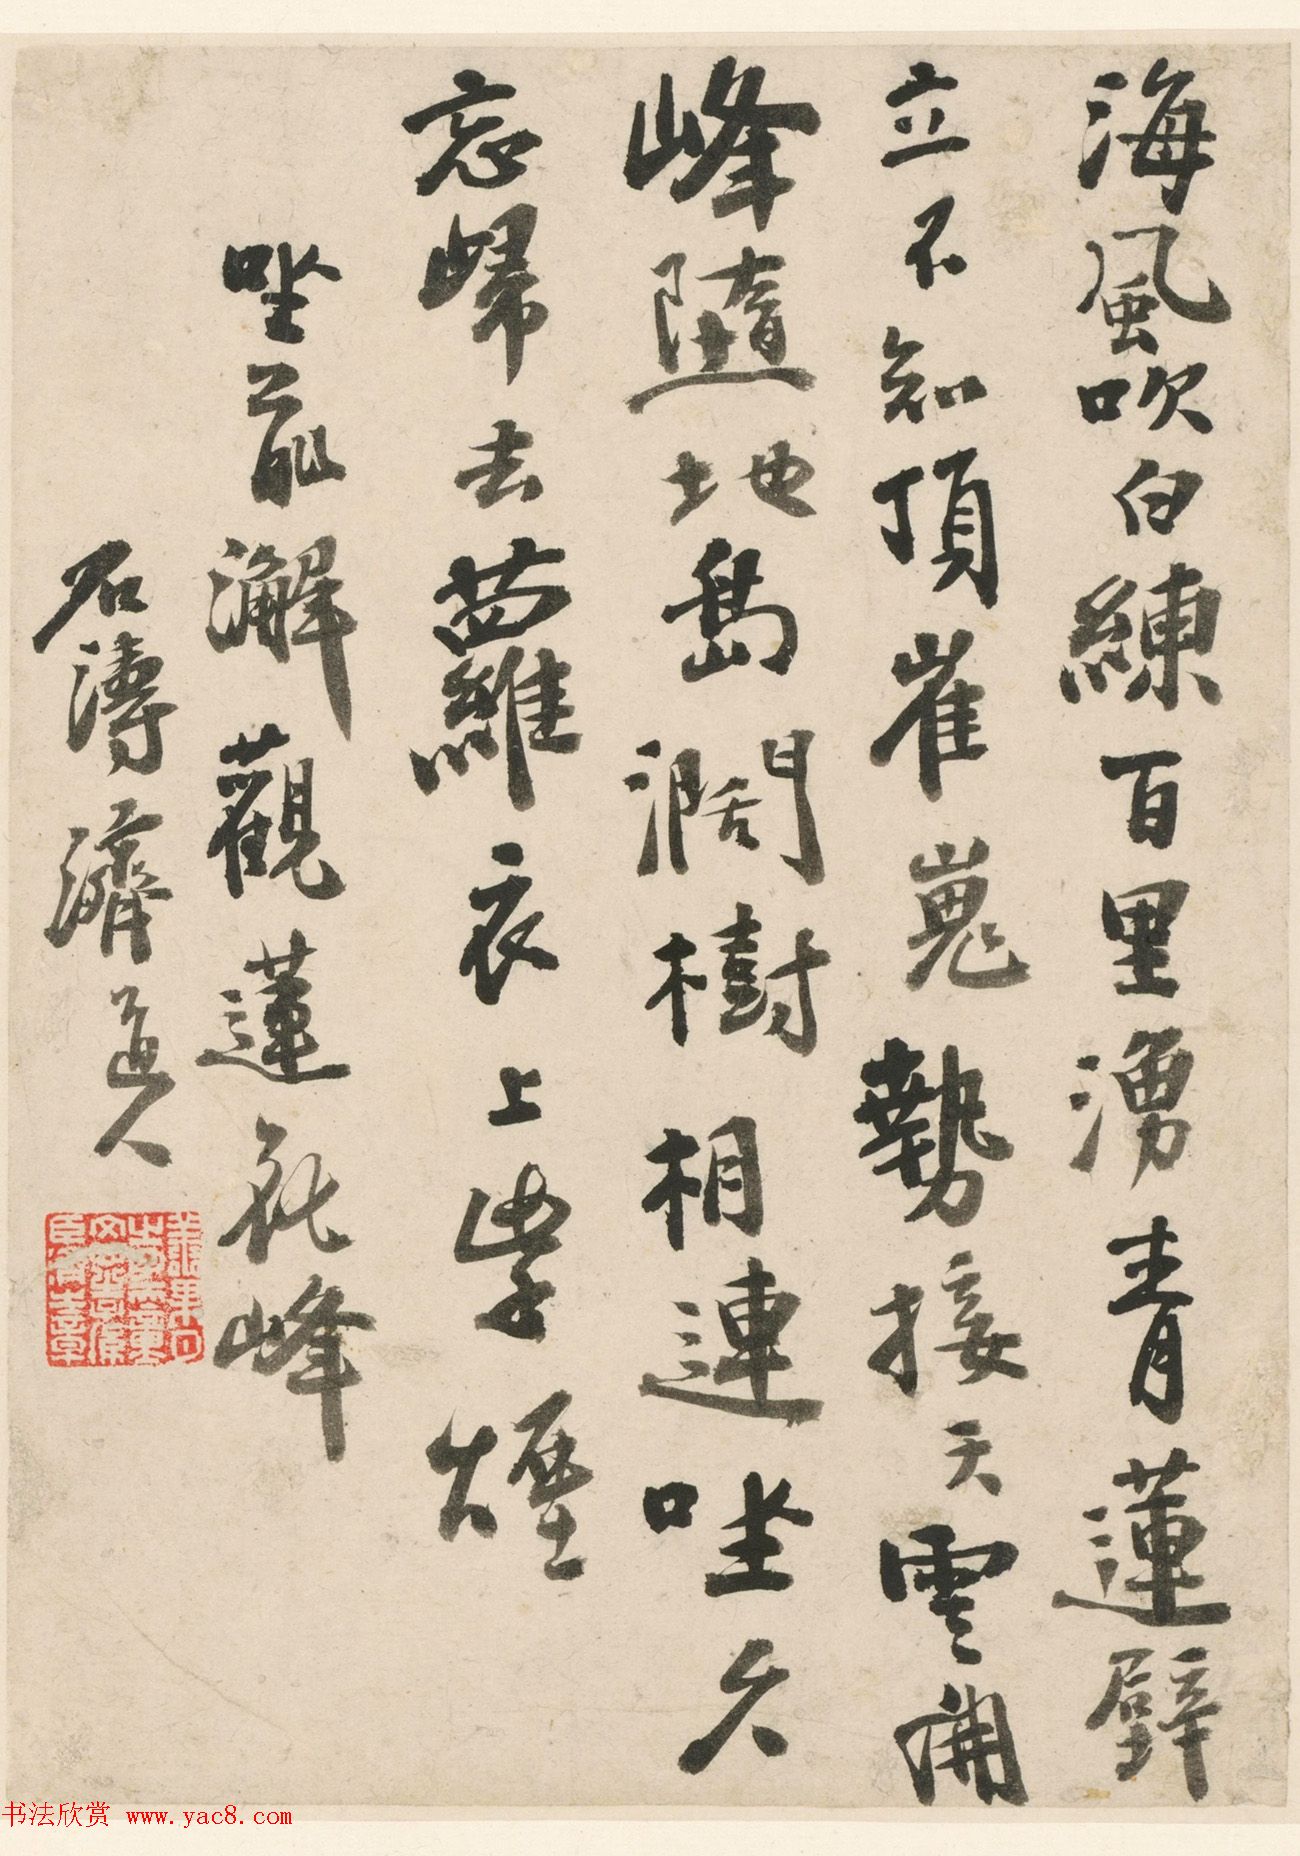 海風吹白練百里湧青蓮壁
立不知頂崔嵬勢接天雲開
峰墮地島濶樹相連坐久
忘歸去蘿衣上紫煙
坐前澥觀蓮花峰
石濤濟道人
书法欣赏 www.yac8.com